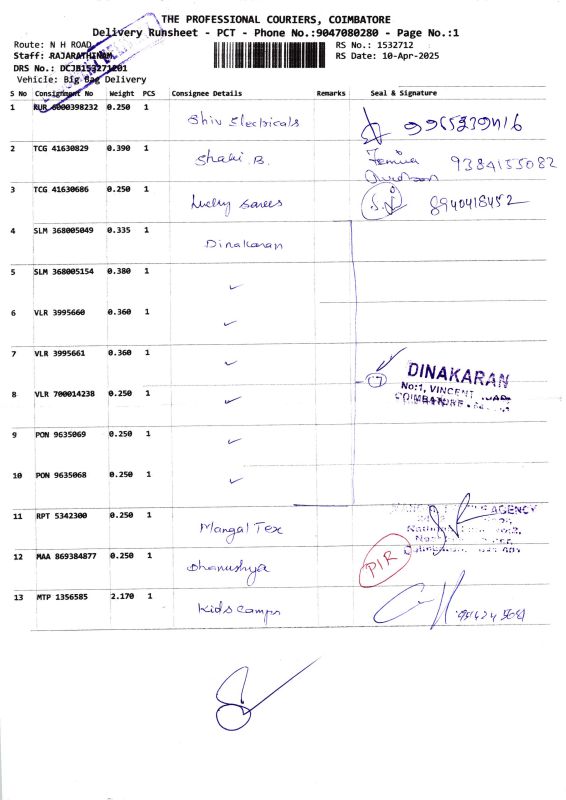 THE PROFESSIONAL COURIERS, COIMBATORE
Delivery Runsheet - PCT - Phone No.:9047080280 - Page No.:1
Route: N H ROAD RS No.: 1532712
Staff: RAJARATHINAM RS Date: 10-Apr-2025
DRS No.: DCJB153271201
Vehicle: Big Bag Delivery
S No Consignment No Weight PCS Consignee Details Remarks Seal & Signature
1 RUR 6000398232 0.250 1 Shiv Electricals
2 TCG 41630829 0.390 1 Shaki B. 9384155082
3 TCG 41630686 0.250 1 Lucky Sarees 8940418452
4 SLM 368005049 0.335 1 Dinakaran
5 SLM 368005154 0.380 1 ✓
6 VLR 3995660 0.360 1 ✓
7 VLR 3995661 0.360 1 ✓
DINAKARAN
No:1, VINCENT
COIMBATORE
8 VLR 700014238 0.250 1 ✓
9 PON 9635069 0.250 1 ✓
10 PON 9635068 0.250 1 ✓
11 RPT 5342300 0.250 1 Mangal Tex
AGENCY
12 MAA 869384877 0.250 1 Dhanushya PIR
13 MTP 1356585 2.170 1 Kids Camps